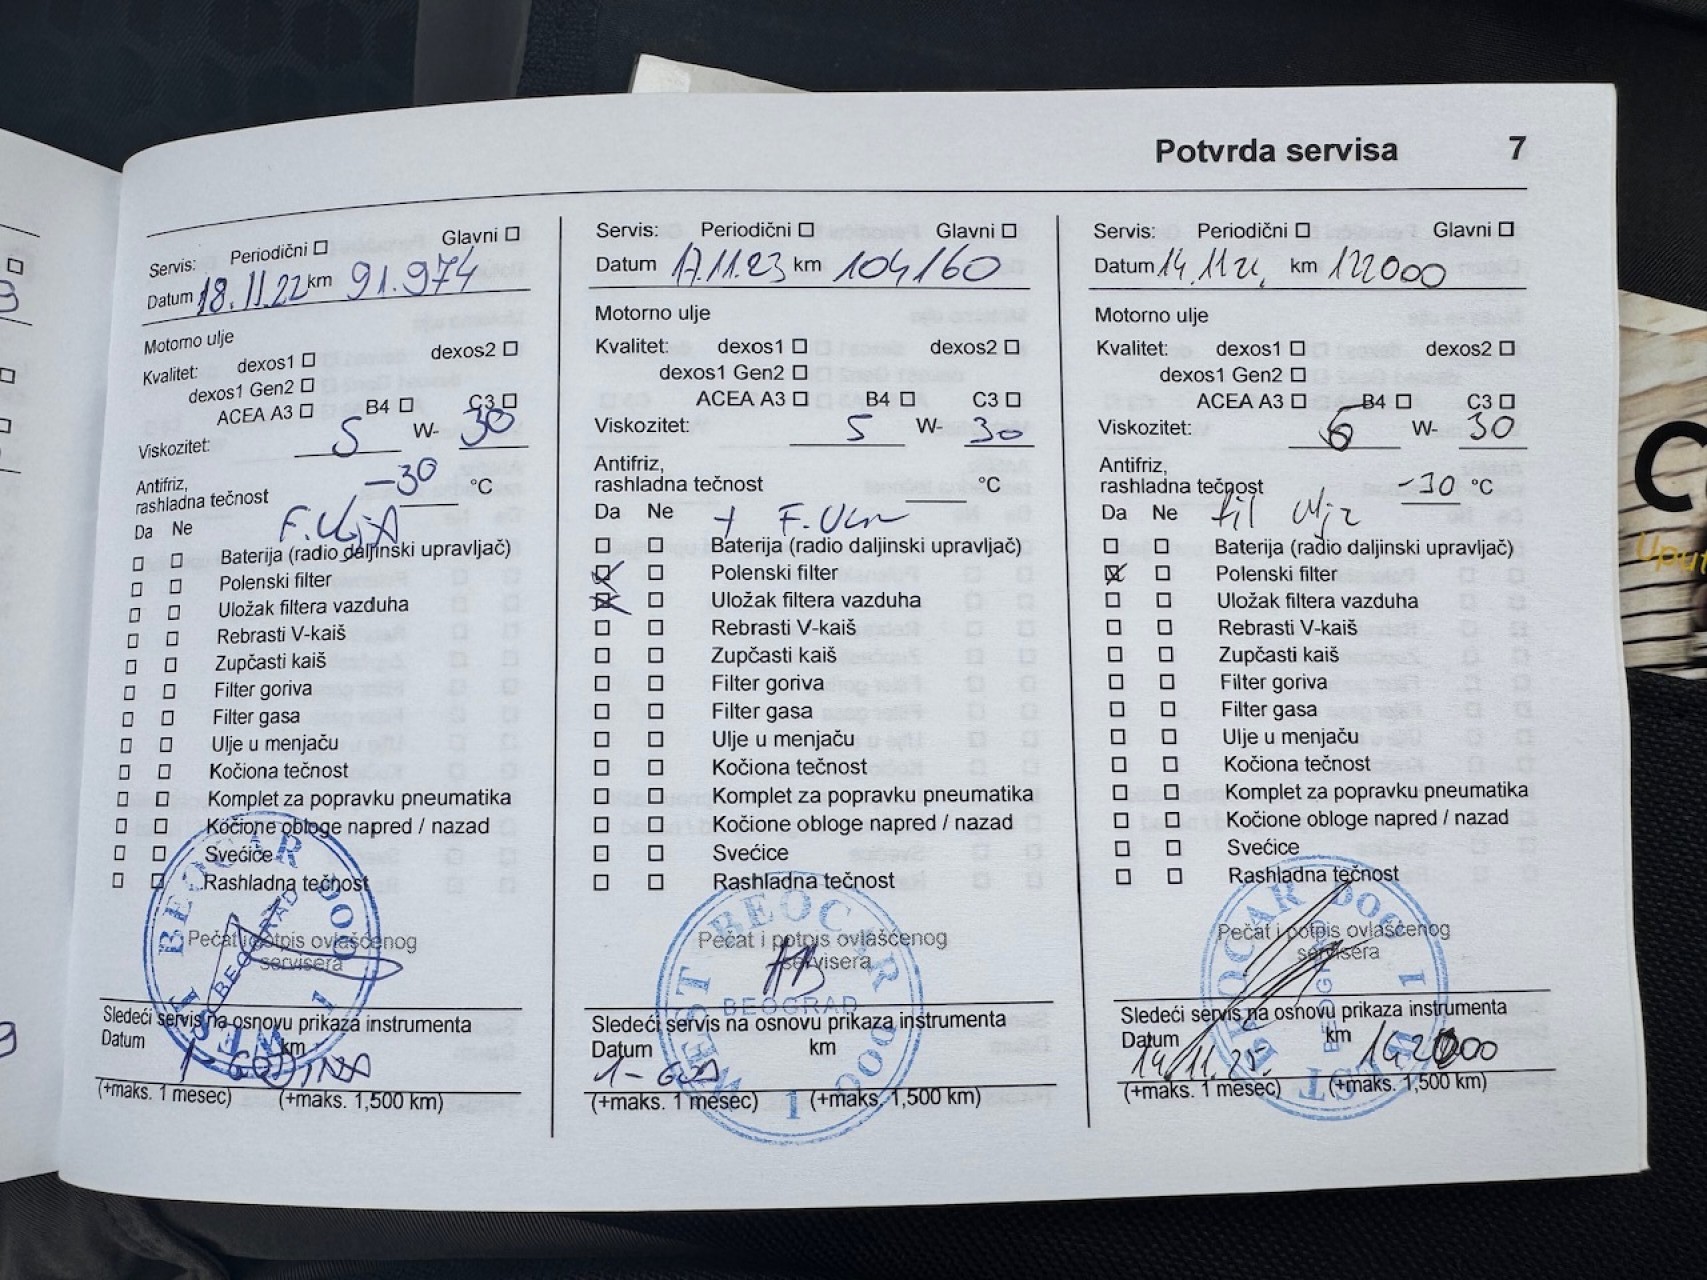 Potvrda servisa 7
Servis: Periodični Glavni
Datum 18.11.22 km 91.974
Motorno ulje
Kvalitet: dexos1 dexos2
dexos1 Gen2
ACEA A3 B4 C3
Viskozitet: 5 W- 30
Antifriz,
rashladna tečnost -30 °C
Da Ne F. UljA
Baterija (radio daljinski upravljač)
Polenski filter
Uložak filtera vazduha
Rebrasti V-kaiš
Zupčasti kaiš
Filter goriva
Filter gasa
Ulje u menjaču
Kočiona tečnost
Komplet za popravku pneumatika
Kočione obloge napred / nazad
Svećice
Rashladna tečnost
Pečat i potpis ovlašćenog
servisera
WEST BEOCAR DOO 1
BEOGRAD
Sledeći servis na osnovu prikaza instrumenta
Datum km
1-GODINA
(+maks. 1 mesec) (+maks. 1,500 km)
Servis: Periodični Glavni
Datum 17.11.23 km 104160
Motorno ulje
Kvalitet: dexos1 dexos2
dexos1 Gen2
ACEA A3 B4 C3
Viskozitet: 5 W- 30
Antifriz,
rashladna tečnost °C
Da Ne + F.
Baterija (radio daljinski upravljač)
Polenski filter
Uložak filtera vazduha
Rebrasti V-kaiš
Zupčasti kaiš
Filter goriva
Filter gasa
Ulje u menjaču
Kočiona tečnost
Komplet za popravku pneumatika
Kočione obloge napred / nazad
Svećice
Rashladna tečnost
Pečat i potpis ovlašćenog
servisera
WEST BEOCAR DOO 1
BEOGRAD
Sledeći servis na osnovu prikaza instrumenta
Datum km
1-GOD
(+maks. 1 mesec) (+maks. 1,500 km)
Servis: Periodični Glavni
Datum 14.11 km 122000
Motorno ulje
Kvalitet: dexos1 dexos2
dexos1 Gen2
ACEA A3 B4 C3
Viskozitet: 5 W- 30
Antifriz,
rashladna tečnost -30 °C
Da Ne fil ulja
Baterija (radio daljinski upravljač)
Polenski filter
Uložak filtera vazduha
Rebrasti V-kaiš
Zupčasti kaiš
Filter goriva
Filter gasa
Ulje u menjaču
Kočiona tečnost
Komplet za popravku pneumatika
Kočione obloge napred / nazad
Svećice
Rashladna tečnost
Pečat i potpis ovlašćenog
servisera
WEST BEOCAR DOO 1
BEOGRAD
Sledeći servis na osnovu prikaza instrumenta
Datum km
14.11.25. 142000
(+maks. 1 mesec) (+maks. 1,500 km)